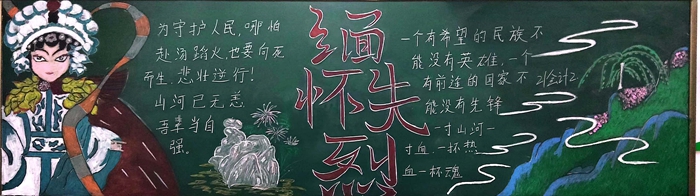 为守护人民,哪怕
赴汤蹈火,也要向死
而生,悲壮逆行!
山河已无恙
吾辈当自
强。
缅
怀先
烈
一个有希望的民族不
能没有英雄,一个
有前途的国家不
能没有先锋
一寸山河一
寸血 一抔热
血一抔魂
21会计2